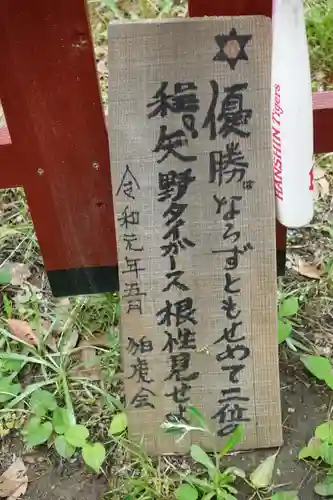 優勝はならずともせめて二位の
穐の矢野タイガース根性見せよ
令和元年五月 狛虎会
HANSHIN Tigers